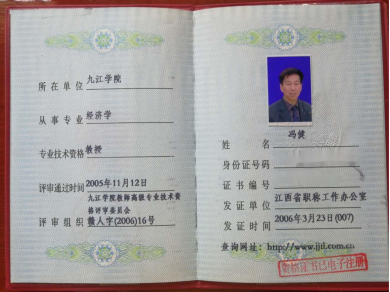 所在单位 九江学院
从事专业 经济学
专业技术资格 教授
评审通过时间 2005年11月12日
九江学院教师高级专业技术资
格评审委员会
评审组织 赣人字(2006)16号
姓名 冯健
身份证号码
证书编号
发证单位 江西省职称工作办公室
发证时间 2006年3月23日(007)
查询网址：http://www.jjtl.com.cn
资格证书已电子注册